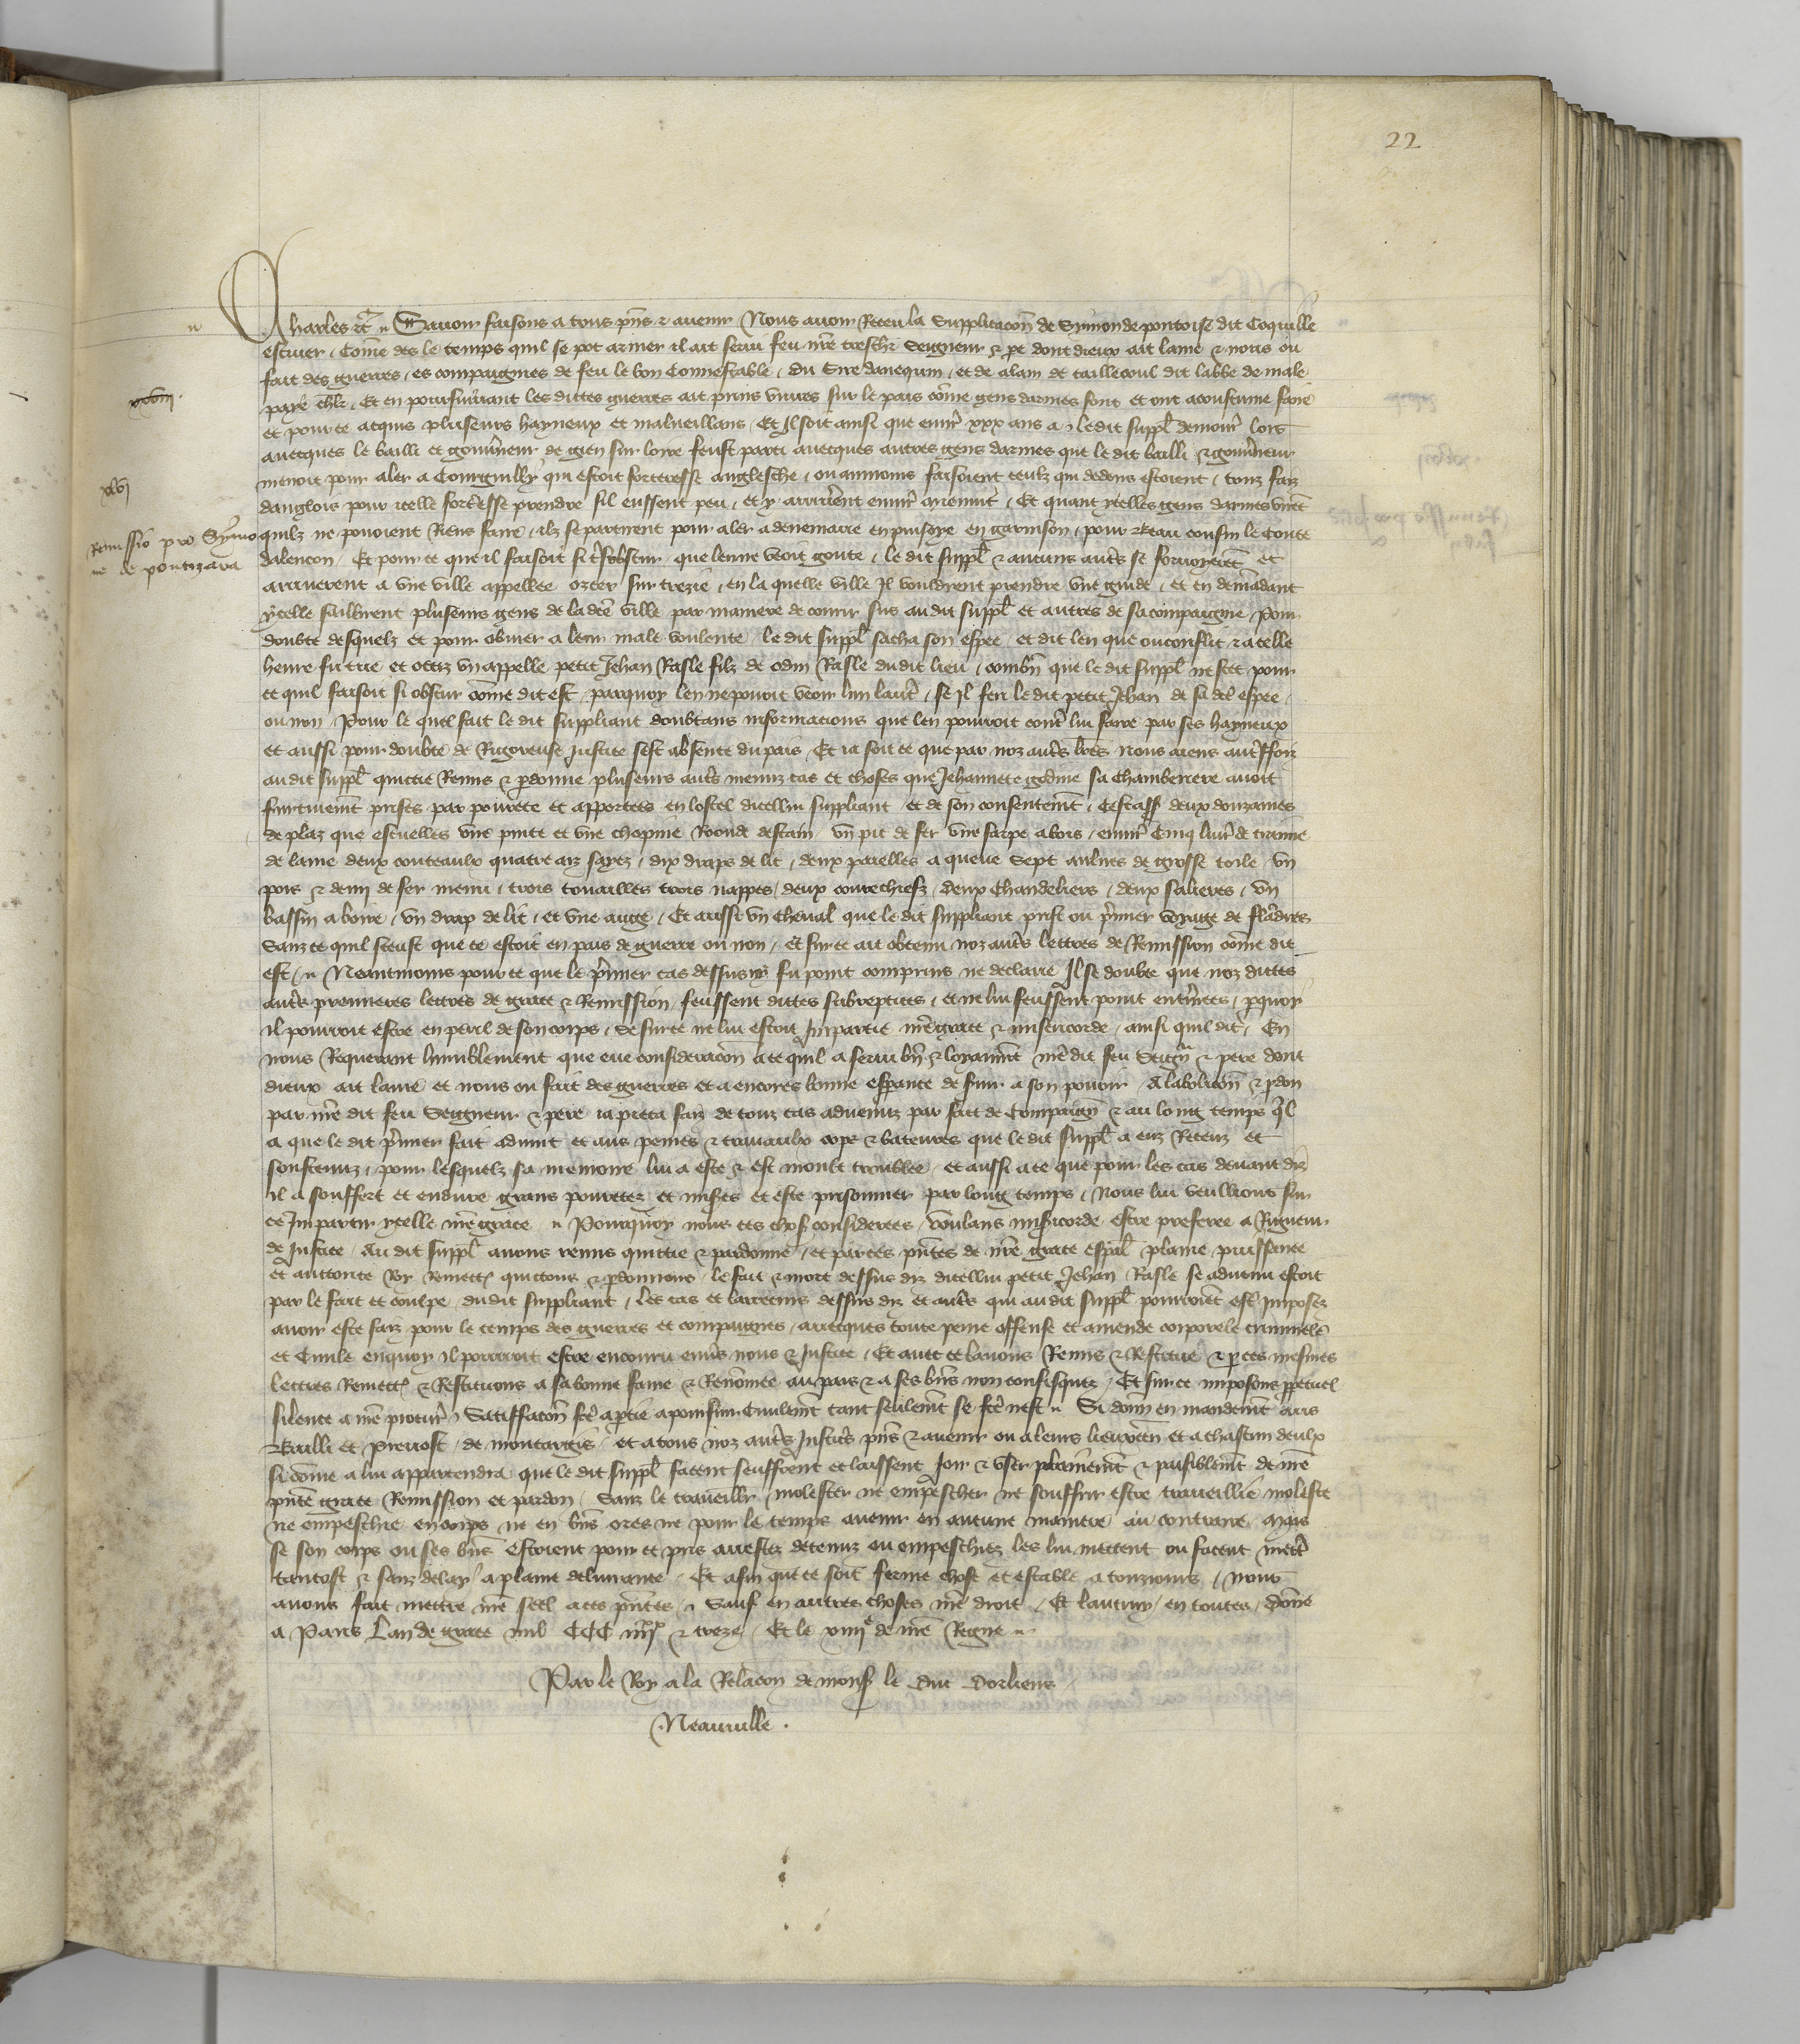 22
Charles etc. Savoir faisons a tous pns & avenir Nous avoir Receu la Supplicacon de Symon de pontoise dit Coquille
escuier, Come des le temps quil se pot armer il ait servi feu nre treschr Seigneur & pe dont dieux ait lame & nous ou
fait des guerres, es compaignies de feu le bon Connestable, du Sire danequin, et de alain de taillecoul dit labbe de male
paye chlr, Et en poursuivant les dittes guerres ait prins vivres sur le pais come gens darmes font et ont acoustume faire
xxviii
et pour ce acquis pluseurs hayneux et malveillans, Et Il soit ainsi que envir xxx ans a, ledit suppl demour lors
avecques le bailli et gouvneur de gien sur loire feust parti avecques autres gens darmes que le dit bailli & gouvneur
menoit pour aler a Courguilly qui estoit forteresse anglesche, ou aumoins faisoient ceulx qui dedens estoient, touz faiz
xlvi
danglois pour icelle fortesse prendre sil eussent peu, et y arriverent envir mienuit, Et quant ycelles gens darmes virent
Remissio pro Symo
ne de pontizara
quilz ne povoient Riens faire, ilz se partirent pour aler a denemarre en puisoye en garnison, pour Beau cousin le Conte
dalencon, Et pour ce que il faisoit si tsobscur que len ne veoit goute, le dit suppl & aucuns auts se forvoyerent et
arriverent a une ville appellee ozoer sur trezie, en la quelle ville Il vouldrent prendre une guide, et en demandant
ycelle saillirent pluseurs gens de ladce ville par maniere de courir sus au dit suppl et autres de sa compaignie Pour
doubte desquelz et pour obvier a leur male voulente le dit suppl sacha son espee et dit len que ou conflit & a celle
heure fu tue et occiz un appelle petit Jehan Rasle filz de odin Rasle dudit lieu, combn que le dit suppl ne scet pour
ce quil faisoit si obscur come dit est, parquoy len ne povoit veoir lun laut, se Il feri le dit petit Jehan de sa dce espee,
ou non, Pour le quel fait le dit suppliant doubtans informacions que len pourroit cont lui faire par ses hayneux
et aussi pour doubte de Rigoreuse Justice sest absente du pais, Et ia soit ce que par noz auts lres nous aiens autffoiz
au dit suppl quictie Remis & pdonne pluseurs auts menuz cas et choses que Jehannete godine sa Chamberiere avoit
furtivemt prises par povrete et apportees en lostel dicellui suppliant et de son consentemt, Cestass deux douzaines
de plaz que escuelles une pinte et une chopine Ronde destain, un pic de fer une sarpe a bois, envir Cinq livr de tiretaine
de laine deux couteaulx quatre aiz syez, dix draps de lit, deux paelles a queue Sept aulnes de grosse toile, un
pois & demi de fer menu, trois touailles trois nappes, deux couvrechiefz, deux Chandeliers, deux salieres, un
bassin a boire, un drap de lit, et une auge, Et aussi un Cheval que le dit suppliant prist ou pmier voyage de flandres
Sanz ce quil sceust que ce estoit en pais de guerre ou non, et sur ce ait obtenu noz auts lettres de Remission come dit
est, Neantmoins pour ce que le pmier cas dessus ny fu point comprins ne declaire Il se doubte que noz dittes
auts premieres lettres de grace & Remission, feussent dittes subreptices, et ne lui feussent point entinees, pquoy
il pourroit estre en peril de son corps, se sur ce ne lui estoit Impartie nre grace & misericorde, ainsi quil dit, En
nous Requerant humblement que eue consideracon a ce quil a servi bn & loyaumt nre dit feu Seign & pere dont
dieux ait lame et nous ou fait des guerres et a encores bonne espance de svir a son povoir, A labolicon & pdon
par nre dit feu Seigneur & pere ia pieca faiz de touz cas advenuz par fait de Compaign & au long temps ql
a que le dit pmier fait advint et aus peines & travaulx cops & bateures que le dit suppl a euz Receuz et
soustenuz, pour lesquelz sa memoire lui a este & est moult troublee, et aussi a ce que pour les cas devant diz
il a souffert et endure grans povretez et mises et este prisonnier par long temps, Nous lui veuillions sur
ce Impartir ycelle nre grace, Pourquoy nous ces chos considerees, voulans misicorde estre preferee a Rigueur
de Justice, Au dit suppl avons remis quictie & pardonne, et par ces pntes de nre grace espal plaine puissance
et auctorite Roy Remett quictons & pdonnons, le fait & mort dessus diz dicellui petit Jehan Rasle se advenu estoit
par le fait et coulpe dudit suppliant, les cas et larrecins dessus diz et auts qui au dit suppl pourroiet est Imposez
avoir este faiz pour le temps des guerres et compaignies, avecques toute peine offense et amende corporele criminele
et Civile en quoy il pourroit estre encouru envs nous & Justice, Et avec ce lavons Remis & Restitue & p ces mesmes
lettres Remett & Restituons a sa bonne fame & Renomee au pais & a ses bns non confisquez, Et sur ce imposons ppetuel
silence a nre procur, Satiffacon fce a ptie a poursuir Civilemt tant seulemt se fce nest, Si donn en mandemt aus
Bailli et Prevost de montargis, et a tous noz auts Justics pns & avenir ou a leurs lieuxten et a chascun deulx
si come a lui appartendra que le dit suppl facent seuffrent et laissent Joir & user plainemt & paisiblemt de nre
pnte grace Remission et pardon, Sanz le traveillr molester ne empescher ne souffrir estre traveillie moleste
ne empeschie en corps ne en bns ores ne pour le temps avenir en aucune maniere au contraire, Mais
se son corps ou ses bns estoient pour ce pris arrestez detenuz ou empeschez les lui mettent ou facent mett
tantost & sanz delay a plaine delivrance, Et afin que ce soit ferme chose et estable a tousiours, Nous
avons fait mettre nre seel a ces pntes, Sauf en autres choses nre droit, Et lautruy en toutes, Done
a Paris Lan de grace mil CCC iiiixx & treze, Et le xiiiie de nre Regne
Par le Roy a la Relacon de mons le duc dorliens
Neauville.